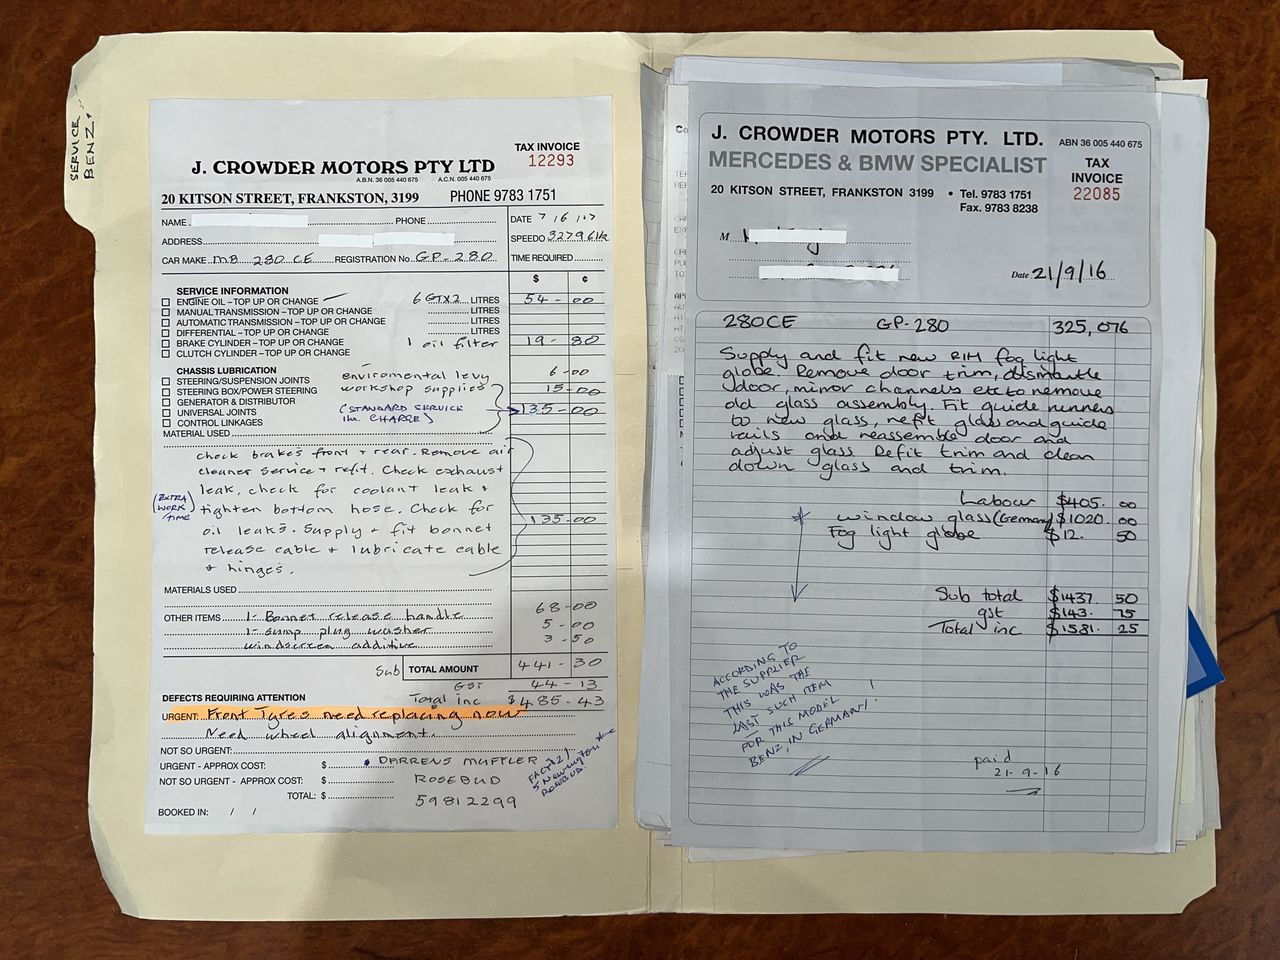 SERVICE
BENZ
TAX INVOICE
12293
J. CROWDER MOTORS PTY LTD
A.B.N. 36 005 440 675 A.C.N. 005 440 675
20 KITSON STREET, FRANKSTON, 3199 PHONE 9783 1751
NAME PHONE DATE 7 16 117
ADDRESS SPEEDO 32796
CAR MAKE MB 280 CE REGISTRATION No. GP-280 TIME REQUIRED
$ ¢
SERVICE INFORMATION
ENGINE OIL – TOP UP OR CHANGE 6 GTX2 LITRES 54-00
MANUAL TRANSMISSION – TOP UP OR CHANGE LITRES
AUTOMATIC TRANSMISSION – TOP UP OR CHANGE LITRES
DIFFERENTIAL – TOP UP OR CHANGE LITRES
BRAKE CYLINDER – TOP UP OR CHANGE 1 oil filter 19-80
CLUTCH CYLINDER – TOP UP OR CHANGE
CHASSIS LUBRICATION enviromental levy 6-00
STEERING/SUSPENSION JOINTS
STEERING BOX/POWER STEERING workshop supplies 15-00
GENERATOR & DISTRIBUTOR
UNIVERSAL JOINTS (STANDARD SERVICE 135-00
CONTROL LINKAGES CHARGE)
MATERIAL USED
check brakes front + rear. Remove air
cleaner service + refit. Check exhaust
leak, check for coolant leak +
(EXTRA WORK TIME) tighten bottom hose. Check for
oil leaks. Supply + fit bonnet 135-00
release cable + lubricate cable
+ hinges.
MATERIALS USED
OTHER ITEMS 1- Bonnet release handle 68-00
1- sump plug washer 5-00
windscreen additive 3-50
Sub TOTAL AMOUNT 441-30
GST 44-13
DEFECTS REQUIRING ATTENTION Total inc $485-43
URGENT: Front Tyres need replacing now
Need wheel alignment.
NOT SO URGENT:
URGENT - APPROX COST: $ DARRENS MUFFLER
NOT SO URGENT - APPROX COST: $ ROSEBUD
TOTAL: $ 59812299
BOOKED IN: / /
ROSEBUD.
J. CROWDER MOTORS PTY. LTD. ABN 36 005 440 675
MERCEDES & BMW SPECIALIST
TAX
INVOICE
22085
20 KITSON STREET, FRANKSTON 3199 • Tel. 9783 1751
Fax. 9783 8238
M
Date 21/9/16
280CE GP-280 325,076
Supply and fit new RIH fog light
globe. Remove door trim, dismantle
door, minor channels etc to remove
old glass assembly. Fit guide runners
to new glass, refit glass and guide
rails and reassemble door and
adjust glass. Refit trim and clean
down glass and trim.
Labour $405. 00
window glass (Germany) $1020. 00
Fog light globe $12. 50
Sub total $1437. 50
gst $143. 75
Total inc $1581. 25
ACCORDING TO
THE SUPPLIER
THIS WAS THE
LAST SUCH ITEM
FOR THIS MODEL
BENZ, IN GERMANY!
paid
21-9-16